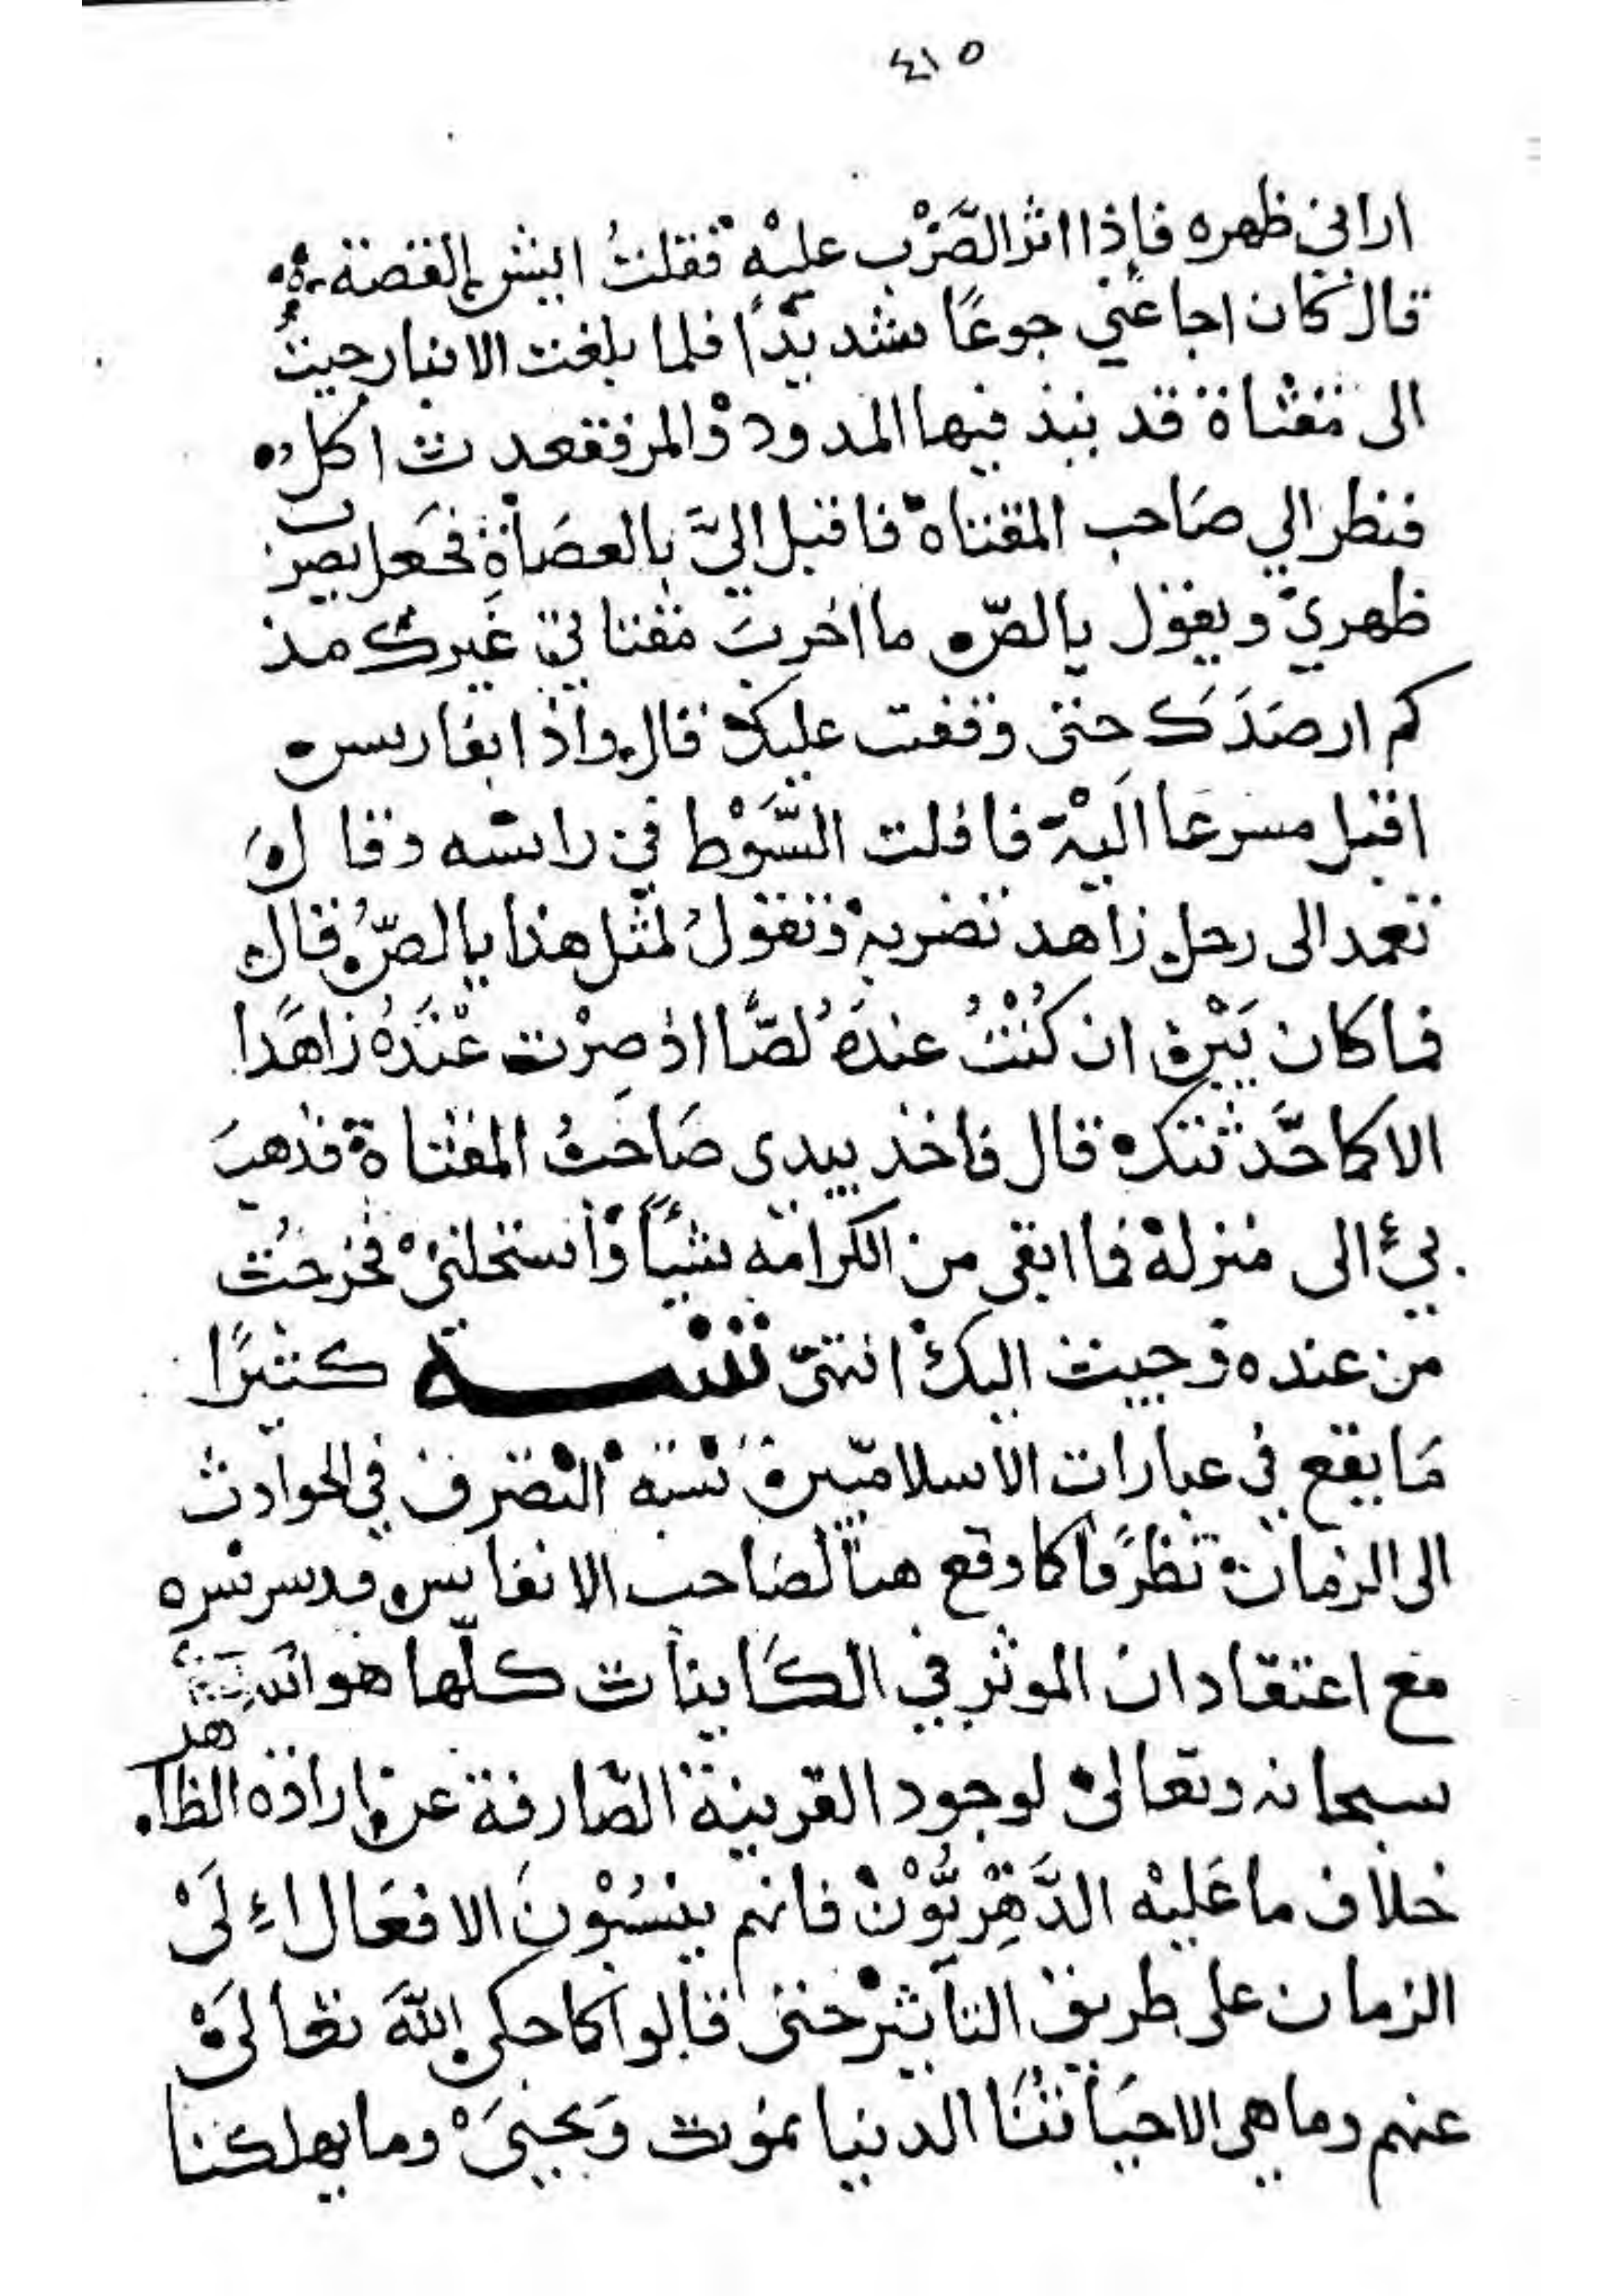 ٤١٥
اراني ظهره فإذا اثر الضَّرْب عليْه فقلتُ ايش القصة
قال كان اجاعني جوعًا شديدًا فلما بلغت الانبار جيتُ
الى مقثاة قد نبذ فيها المدود والمر فقعدت اكل
فنظر الي صَاحب المقتاة فاقبل اليَّ بالعصَاة فجَعل يضرب
ظهري ويقول يا لصّ ما اخربَ مقتاتي غَيرك مذ
كم ارصَدَك حتى وقفت عليك قال واذا بفارس
اقبل مسرعَا اليْه فاقلت السَّوْط في راسه وقالَ
تعمد الى رجل زاهد تضربه وتقولُ لمثل هذا يا لصّ قال
فما كان بَيْن ان كُنْتُ عندَهُ لصًّا اذ صِرْت عنْدَهُ زاهدًا
الا كما حَدَّثتك قال فاخذ بيدى صَاحبُ المقتاة فذهبَ
بي الى منزله فما ابقى من الكرامه شيئًا واستحلني فخرجتُ
من عنده وجيت اليك انتهى تنبيه كثيرًا
مَا يقع في عبارات الاسلاميين نسبة التصَرف في الحوادث
الى الزمان تظرفًا كما وقع هنا لصَاحب الانفاس قدس سره
مع اعتقاد ان الموثر في الكَاينات كلّها هو الله
سبحانه وتعالى لوجود القرينة الصَّارفة عن ارادة الظاهر
خلاف ما عَليْه الدَّهْرِيُّوْنَ فانهم ينسُبْونَ الافعَال اِلَىْ
الزمان على طريق التاثير حتى قالوا كما حكى اللهَ تعَالىَ
عنهم وما هى الا حيَاتنَا الدنيا نموت وَنحيىَ وما يهلكنا